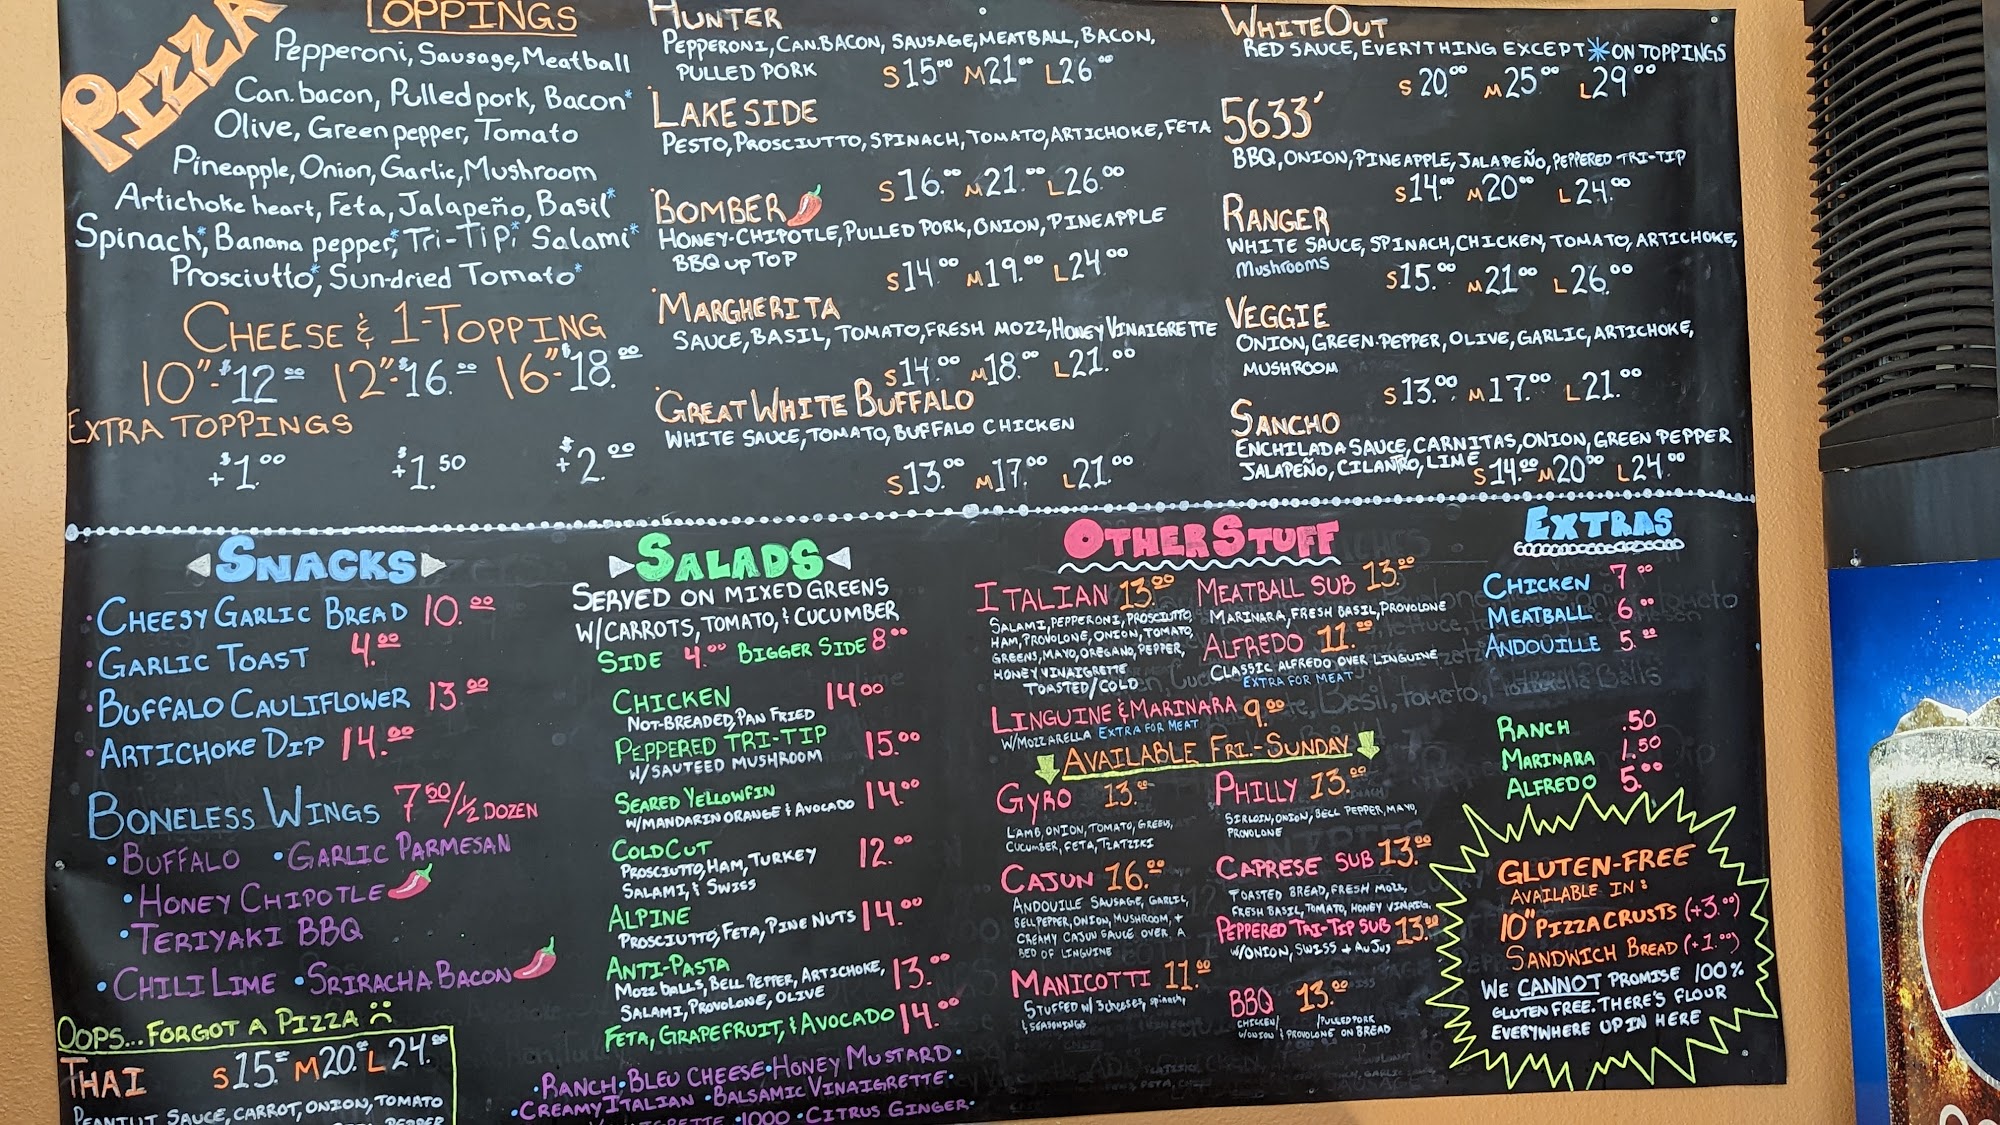 PIZZA
TOPPINGS
Pepperoni, Sausage, Meatball
Can. bacon, Pulled pork, Bacon*
Olive, Green pepper, Tomato
Pineapple, Onion, Garlic, Mushroom
Artichoke heart, Feta, Jalapeño, Basil*
Spinach*, Banana pepper*, Tri-Tip*, Salami*
Prosciutto*, Sun-dried Tomato*
CHEESE & 1-TOPPING
10"-$12.00 12"-$16.00 16"-$18.00
EXTRA TOPPINGS
+$1.00 +$1.50 +$2.00
HUNTER
PEPPERONI, CAN. BACON, SAUSAGE, MEATBALL, BACON,
PULLED PORK
S 15.00 M 21.00 L 26.00
LAKESIDE
PESTO, PROSCIUTTO, SPINACH, TOMATO, ARTICHOKE, FETA
S 16.00 M 21.00 L 26.00
BOMBER
HONEY-CHIPOTLE, PULLED PORK, ONION, PINEAPPLE
BBQ UP TOP
S 14.00 M 19.00 L 24.00
MARGHERITA
SAUCE, BASIL, TOMATO, FRESH MOZZ, HONEY VINAIGRETTE
S 14.00 M 18.00 L 21.00
GREAT WHITE BUFFALO
WHITE SAUCE, TOMATO, BUFFALO CHICKEN
S 13.00 M 17.00 L 21.00
WHITEOUT
RED SAUCE, EVERYTHING EXCEPT * ON TOPPINGS
S 20.00 M 25.00 L 29.00
5633'
BBQ, ONION, PINEAPPLE, JALAPEÑO, PEPPERED TRI-TIP
S 14.00 M 20.00 L 24.00
RANGER
WHITE SAUCE, SPINACH, CHICKEN, TOMATO, ARTICHOKE,
MUSHROOMS
S 15.00 M 21.00 L 26.00
VEGGIE
ONION, GREEN PEPPER, OLIVE, GARLIC, ARTICHOKE,
MUSHROOM
S 13.00 M 17.00 L 21.00
SANCHO
ENCHILADA SAUCE, CARNITAS, ONION, GREEN PEPPER
JALAPEÑO, CILANTRO, LIME S 14.00 M 20.00 L 24.00
SNACKS
•CHEESY GARLIC BREAD 10.00
•GARLIC TOAST 4.00
•BUFFALO CAULIFLOWER 13.00
•ARTICHOKE DIP 14.00
BONELESS WINGS 7.50/½ DOZEN
•BUFFALO •GARLIC PARMESAN
•HONEY CHIPOTLE
•TERIYAKI BBQ
•CHILI LIME •SRIRACHA BACON
OOPS...FORGOT A PIZZA
THAI S 15.00 M 20.00 L 24.00
PEANUT SAUCE, CARROT, ONION, TOMATO
PEPPER
SALADS
SERVED ON MIXED GREENS
W/CARROTS, TOMATO, & CUCUMBER
SIDE 4.00 BIGGER SIDE 8.00
CHICKEN 14.00
NOT-BREADED, PAN FRIED
PEPPERED TRI-TIP 15.00
W/SAUTEED MUSHROOM
SEARED YELLOWFIN 14.00
W/MANDARIN ORANGE & AVOCADO
COLDCUT 12.00
PROSCIUTTO, HAM, TURKEY
SALAMI, & SWISS
ALPINE 14.00
PROSCIUTTO, FETA, PINE NUTS
ANTI-PASTA 13.00
MOZZ BALLS, BELL PEPPER, ARTICHOKE,
SALAMI, PROVOLONE, OLIVE
FETA, GRAPEFRUIT, & AVOCADO 14.00
•RANCH •BLEU CHEESE •HONEY MUSTARD•
•CREAMY ITALIAN •BALSAMIC VINAIGRETTE•
•1000 •CITRUS GINGER•
OTHER STUFF
ITALIAN 13.00
SALAMI, PEPPERONI, PROSCIUTTO,
HAM, PROVOLONE, ONION, TOMATO,
GREENS, MAYO, OREGANO, PEPPER,
HONEY VINAIGRETTE
TOASTED/COLD
MEATBALL SUB 13.00
MARINARA, FRESH BASIL, PROVOLONE
ALFREDO 11.00
CLASSIC ALFREDO OVER LINGUINE
EXTRA FOR MEAT
LINGUINE & MARINARA 9.00
W/MOZZARELLA EXTRA FOR MEAT
AVAILABLE FRI.-SUNDAY
GYRO 13.00
LAMB, ONION, TOMATO, GREENS,
CUCUMBER, FETA, TZATZIKI
CAJUN 16.00
ANDOUILLE SAUSAGE, GARLIC,
BELL PEPPER, ONION, MUSHROOM, +
CREAMY CAJUN SAUCE OVER A
BED OF LINGUINE
MANICOTTI 11.00
STUFFED W/ 3 CHEESES, SPINACH,
& SEASONINGS
PHILLY 13.00
SIRLOIN, ONION, BELL PEPPER, MAYO,
PROVOLONE
CAPRESE SUB 13.00
TOASTED BREAD, FRESH MOZZ,
FRESH BASIL, TOMATO, HONEY VINAIG.
PEPPERED TRI-TIP SUB 13.00
W/ONION, SWISS + AU JUS
BBQ 13.00
CHICKEN/ /PULLED PORK
W/ONION & PROVOLONE ON BREAD
EXTRAS
CHICKEN 7.00
MEATBALL 6.00
ANDOUILLE 5.00
RANCH .50
MARINARA 1.50
ALFREDO 5.00
GLUTEN-FREE
AVAILABLE IN:
10" PIZZA CRUSTS (+3.00)
SANDWICH BREAD (+1.00)
WE CANNOT PROMISE 100%
GLUTEN FREE. THERE'S FLOUR
EVERYWHERE UP IN HERE